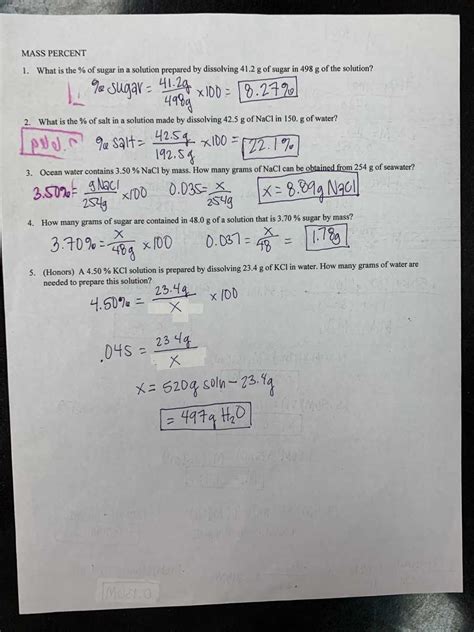 MASS PERCENT
1. What is the % of sugar in a solution prepared by dissolving 41.2 g of sugar in 498 g of the solution?
% sugar = 41.2g / 498g x100 = 8.27%
2. What is the % of salt in a solution made by dissolving 42.5 g of NaCl in 150. g of water?
% salt = 42.5g / 192.5g x100 = 22.1%
3. Ocean water contains 3.50 % NaCl by mass. How many grams of NaCl can be obtained from 254 g of seawater?
3.50% = g NaCl / 254g x100 0.035 = x / 254g x = 8.89g NaCl
4. How many grams of sugar are contained in 48.0 g of a solution that is 3.70 % sugar by mass?
3.70% = x / 48g x 100 0.037 = x / 48 = 1.78g
5. (Honors) A 4.50 % KCl solution is prepared by dissolving 23.4 g of KCl in water. How many grams of water are
needed to prepare this solution?
4.50% = 23.4g / x x 100
.045 = 23 4g / x
x = 520g soln - 23.4g
= 497g H2O